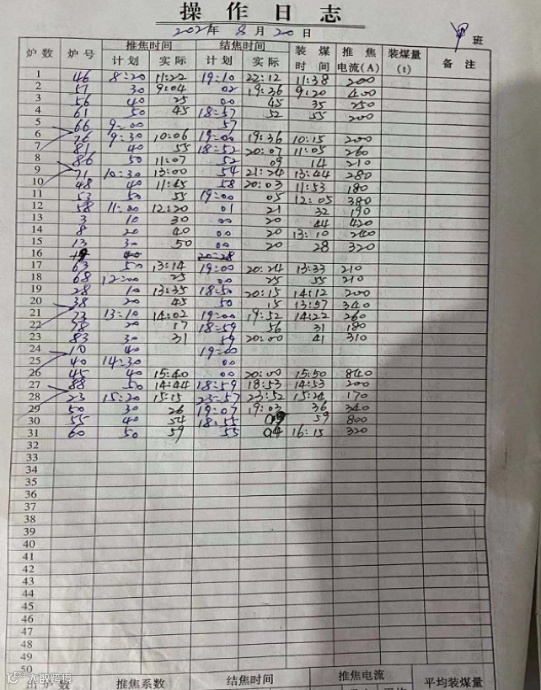 操作日志
2021年8月20日 班
炉数 炉号 推焦时间 结焦时间 装煤时间 推焦电流(A) 装煤量(t) 备注
计划 实际 计划 实际
1 46 8:20 11:22 19:10 22:12 11:38 200
2 51 30 9:04 02 19:36 9:20 400
3 56 40 25 00 45 35 250
4 61 50 45 18:57 52 55 200
5 66 9:00 57
6 76 9:30 10:06 19:00 19:36 10:15 200
7 81 40 55 18:52 20:07 11:05 260
8 86 50 11:07 52 09 14 210
9 71 10:30 13:00 54 21:24 13:44 280
10 48 40 11:45 58 20:03 11:53 180
11 53 50 55 19:00 05 12:05 380
12 58 11:00 12:20 01 21 32 190
13 3 10 30 00 20 44 420
14 8 20 40 00 20 13:10 240
15 13 30 50 00 20 28 320
16 40 20:28
17 63 50 13:14 19:00 20:24 13:33 210
18 68 12:00 25 00 25 55 210
19 28 10 13:35 18:50 20:15 14:12 200
20 38 20 45 50 15 13:57 340
21 73 13:10 14:02 19:00 19:52 14:22 260
22 78 20 17 18:59 56 31 180
23 83 30 31 59 20:00 41 310
24 10 40 19:00
25 40 14:30 00
26 45 40 15:40 00 20:00 15:50 840
27 88 50 14:44 18:59 18:53 14:53 200
28 23 15:20 15:15 23:57 23:52 15:24 170
29 50 30 26 19:07 19:03 36 340
30 55 40 54 18:55 59 800
31 60 50 59 55 04 16:15 320
32
33
34
35
36
37
38
39
40
41
42
43
44
45
46
47
48
49
50
出炉数 推焦系数 结焦时间 推焦电流 平均装煤量